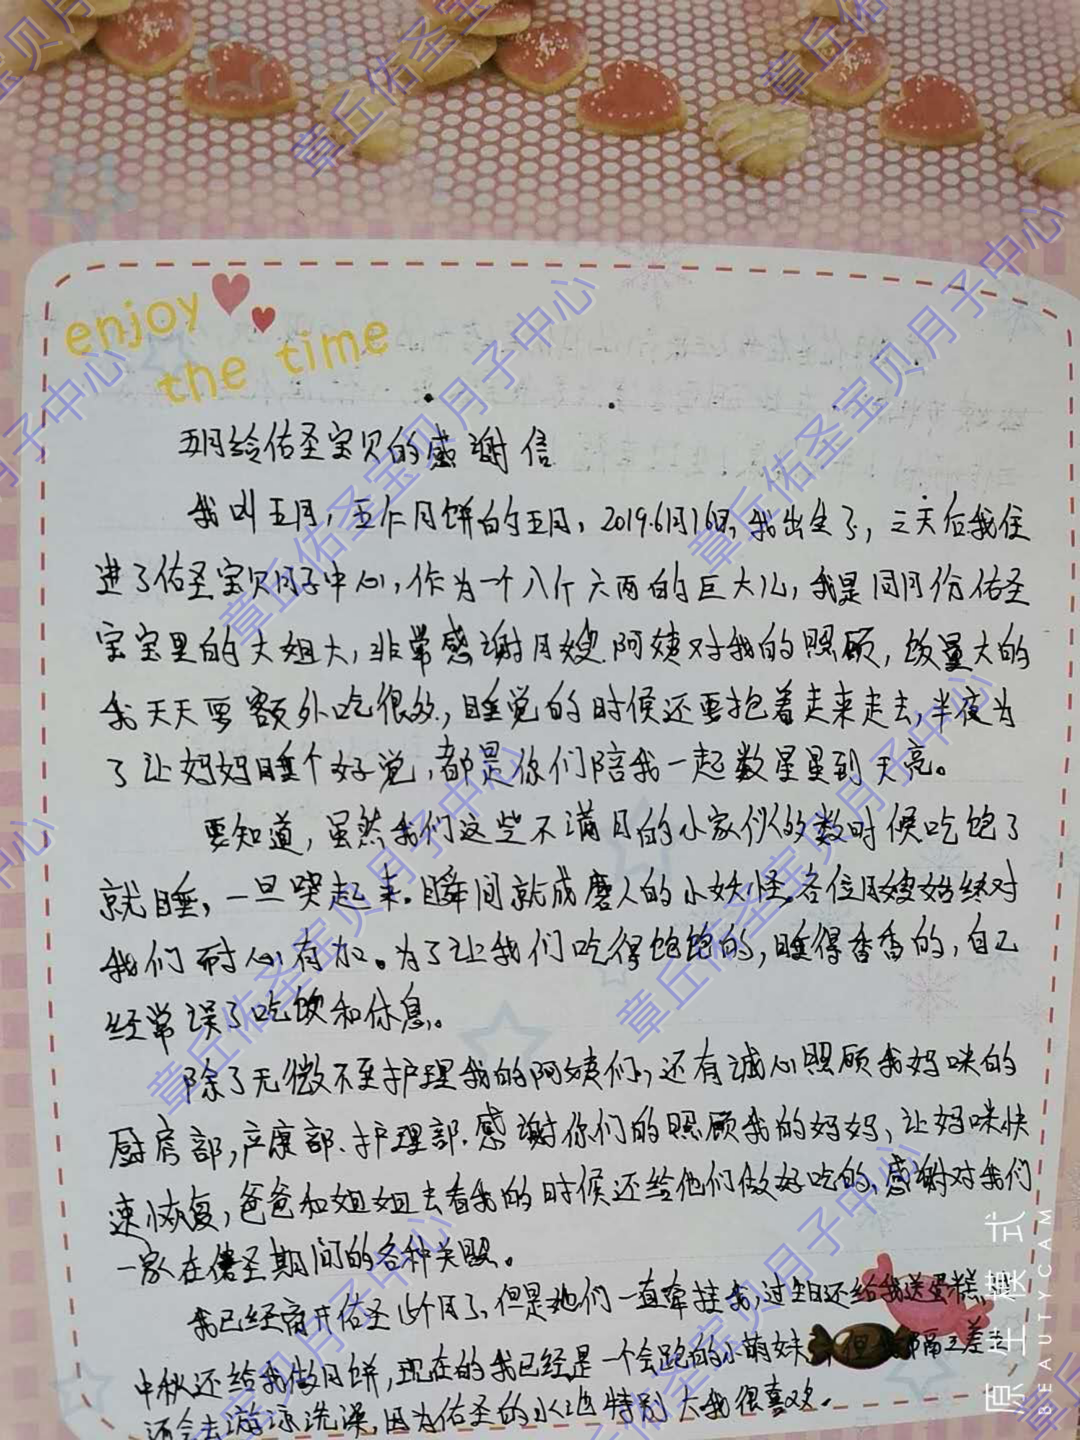 enjoy
the time
五月给佑圣宝贝的感谢信
我叫五月，五仁月饼的五月，2019.6月16日，我出生了，三天后我住
进了佑圣宝贝月子中心，作为一个八斤六两的巨大儿，我是同月份佑圣
宝宝里的大姐大，非常感谢月嫂阿姨对我的照顾，饭量大的
我天天要额外吃很多，睡觉的时候还要抱着走来走去，半夜为
了让妈妈睡个好觉，都是你们陪我一起数星星到天亮。
要知道，虽然我们这些不满月的小家伙多数时候吃饱了
就睡，一旦哭起来，瞬间就成磨人的小妖怪，各位月嫂始终对
我们耐心有加。为了让我们吃得饱饱的，睡得香香的，自己
经常误了吃饭和休息。
除了无微不至护理我的阿姨们，还有诚心照顾我妈咪的
厨房部，产康部、护理部，感谢你们的照顾我的妈妈，让妈咪快
速恢复，爸爸和姐姐去看我的时候还给他们做好吃的，感谢对我们
一家在佑圣期间的各种关照。
我已经离开佑圣个月了，但是她们一直牵挂我，过生日还给我送蛋糕，
中秋还给我做月饼，现在的我已经是一个会跑的小萌妹，但隔三差五
还会去游泳洗澡，因为佑圣的水池特别大我很喜欢。
章丘佑圣宝贝月子中心
原生模式
BEAUTYCAM